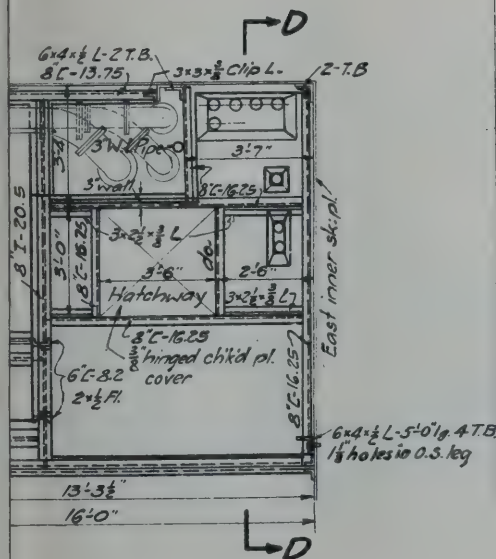 D
6×4×½ L-2 T.B.
8"C-13.75
3×3×⅜ Clip L.
2-T.B
3'-4"
3" W.I. Pipe
3'-7"
8"C-16.25
3" wall
8"I-20.5
3'-0"
8"C-16.25
3×2½×⅜ L
3'-6"
do.
2'-6"
Hatchway
3×2½×⅜ L
East inner sk.pl.
8"C-16.25
hinged ch'k'd pl.
cover
6"C-8.2
2×½ Fl.
8"C-16.25
6×4×½ L-5'-0" lg. 4 T.B.
holes in O.S. leg
13'-3½"
16'-0"
D